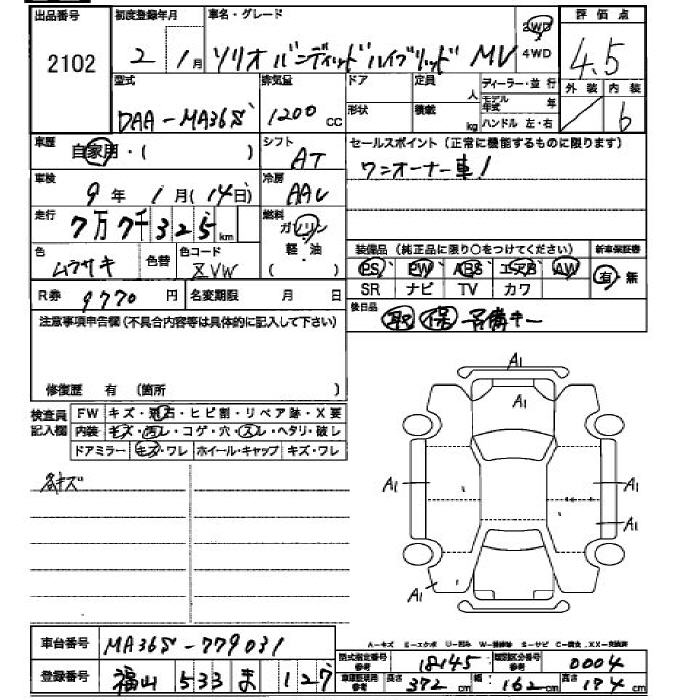 出品番号 初度登録年月 車名・グレード 2WD 評価点
2102 2 1月 ソリオ バンディットハイブリッド MV 4WD 4.5
型式 排気量 ドア 定員 人 ディーラー・並行 外装 内装
DAA-MA36S 1200 CC 形状 積載 kg モデル年式 年 6
ハンドル 左・右
車歴 自家用・( ) シフト AT セールスポイント(正常に機能するものに限ります)
車検 9年 1月(14日) 冷房 AAC ワンオーナー車!
走行 7万7千325km 燃料 ガソリン
色 ムラサキ 色替 色コード ZVW 軽・油 ( ) 装備品(純正品に限り○をつけてください) 新車保証書
PS PW ABS エアB AW 有 無
R券 9770円 名変期限 月 日 SR ナビ TV カワ
注意事項申告欄(不具合内容等は具体的に記入して下さい) 後日品 取 保 予備キー
修復歴 有 (箇所 )
検査員記入欄 FW キズ・飛石・ヒビ割・リペア跡・X要
内装 キズ・汚レ・コゲ・穴・スレ・ヘタリ・破レ
ドアミラー キズ・ワレ ホイール・キャップ キズ・ワレ
各キズ
A1
A1
A1 A1
A1
A1
車台番号 MA36S-779031
A-キズ E-エクボ U-凹み W-補修跡 S-サビ C-腐食 XX-交換済
型式指定番号 参考 18145 類別区分番号 参考 0004
登録番号 福山 533 ま 127 車庫証明用 参考 長さ 372cm 幅 162cm 高さ 174cm